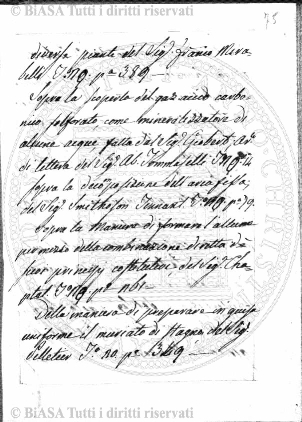 © BiASA Tutti i diritti riservati
75
diverse piante del Sig.r Franco Mera
T. 19. p.a 389.
Sopra la scoperta del gas acido carbo-
nico, solforato, come mineralizzatore di
alcune acque, fatta dal Sig.r Giobert, 
di lettera del Sig.r Ab. Tommaselli T. 19.
sopra la decomposizione dell'aria fissa,
del Sig.r Smithson Tennant T. 19. p.a 79.
Sopra la maniera di formare l'allume
per mezzo della combinazione diretta de
suoi principj costitutivi, del Sig.r Cha-
ptal. T. 19. p.a 161.
Della maniera di preparare in guisa
uniforme il muriato di stagno, del Sig.r
Pelletier T.o 20. p.a 349
© BiASA Tutti i diritti riservati